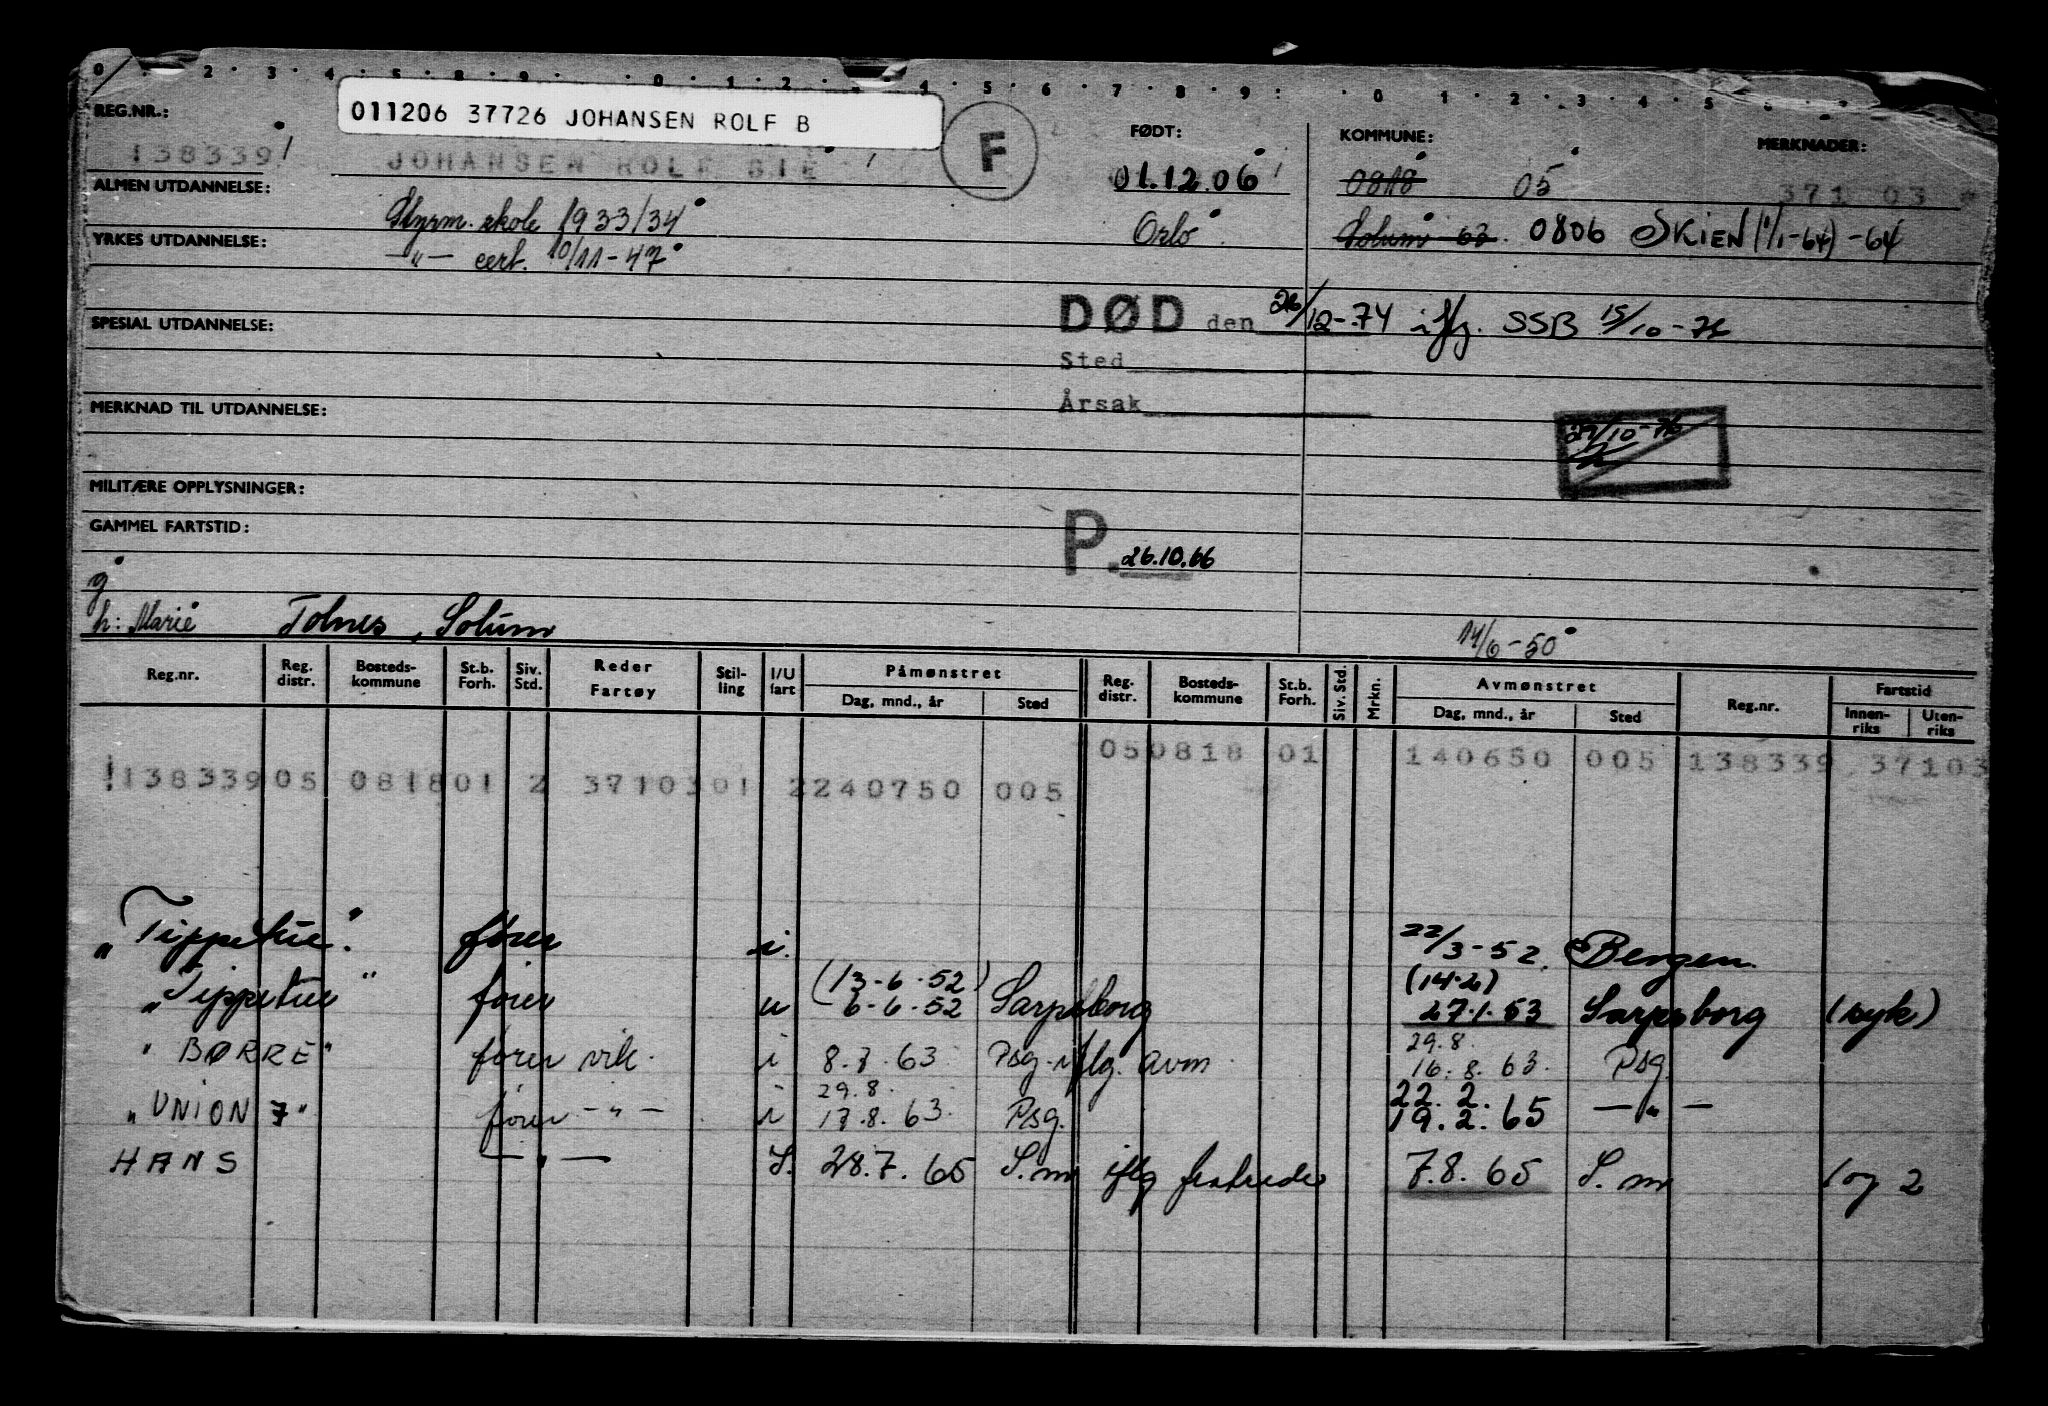 0 · 2 · 3 · 4 · 5 · 8 · 9 · 0 · 1 · 2 · 3 · 4 · 5 · 6 · 7 · 8 · 9 : · 0 · 1 · 2 · 3 · 4 · 5
REG.NR.: 011206 37726 JOHANSEN ROLF B F FØDT: KOMMUNE: MERKNADER:
138339 JOHANSEN ROLF BIE 01.12.06 0818 05 371 03
ALMEN UTDANNELSE: Styrm. skole 1933/34 Oslo Solum 63. 0806 SKIEN (1/1-64) -64
YRKES UTDANNELSE: —"— cert. 10/11-47
DØD den 26/12-74 iflg. SSB 15/10-76
SPESIAL UTDANNELSE:
Sted
Årsak
MERKNAD TIL UTDANNELSE:
27/10-76
MILITÆRE OPPLYSNINGER:
GAMMEL FARTSTID:
P. 26.10.66
g
h: Marie Tolnes, Solum 14/6-50
Reg.nr. Reg. distr. Bosteds-kommune St.b. Forh. Siv. Std. Reder Fartøy Stil-ling I/U fart Påmønstret Dag, mnd., år Sted Reg. distr. Bosteds-kommune St.b. Forh. Siv. Std. Mrkn. Avmønstret Dag, mnd., år Sted Reg.nr. Fartstid Innen-riks Uten-riks
050818 01 140650 005 138339 37103
138339 05 0818 01 2 3710301 2 240750 005
"Tippetue". fører i. 22/3-52. Bergen
"Tippetue" fører u (13-6-52) 6-6-52 Sarpsborg (14-2) 27.1.53 Sarpsborg (syk)
"BØRRE" fører vik. i 8.7.63 Psg. iflg. avm. 29.8. 16.8.63. Psg.
"UNION 7" fører —"— i 29.8. 17.8.63. Psg. 22.2. 19.2.65 —"—
HANS —"— I. 28.7.65 S.m iflg fratreder 7.8.65 S.m 1 og 2